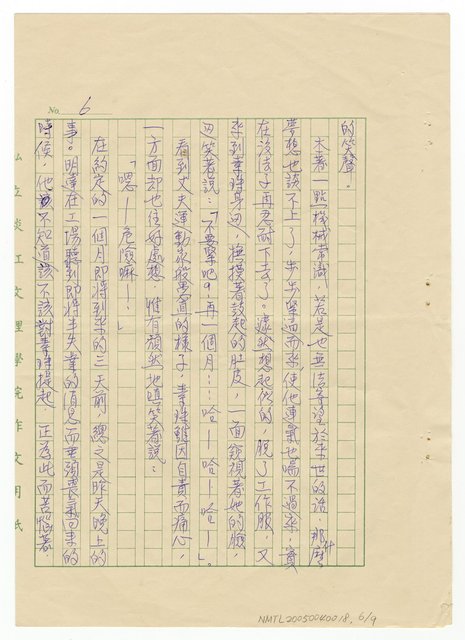 No. 6
的笑聲。
本著一點機械常識，若是也無法寄望於來世的話，那麼什
夢想也談不上了。步步緊逼而來，使他連氣也喘不過來，實
在沒法子再忍耐下去了。突然想起似的，脫了工作服，又
來到素珠身邊，撫摸著鼓起的肚皮，一面窺視著她的臉，
邊笑著說：「不要緊吧？再一個月……哈－哈－哈－」。
看到丈夫運動家般勇壯的樣子，素珠雖因自責而痛心，
一方面卻也往好處想，惟有頑然地陪笑著說：
「嗯－危險嘛－」
在約定的一個月即將到來的三天前，總之是昨天晚上的
事。明達在工場聽到即將半失業的消息而垂頭喪氣回來的
時候，他只知道該不該對素珠提起，正為此而苦惱著，
私立淡江文理學院作文用紙
NMTL20050040018, 6/9